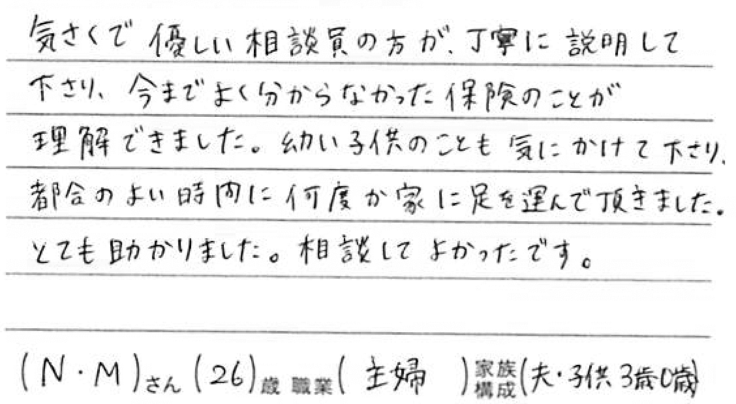 気さくで優しい相談員の方が、丁寧に説明して
下さり、今までよく分からなかった保険のことが
理解できました。幼い子供のことも気にかけて下さり、
都合のよい時間に何度か家に足を運んで頂きました。
とても助かりました。相談してよかったです。
(N・M)さん(26)歳 職業(主婦)家族構成(夫・子供3歳0歳)